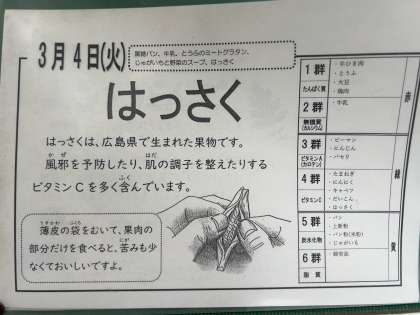 3月4日(火)
黒糖パン、牛乳、とうふのミートグラタン、
じゃがいもと野菜のスープ、はっさく
はっさく
はっさくは、広島県で生まれた果物です。
かぜ はだ
風邪を予防したり、肌の調子を整えたりする
ふく
ビタミンCを多く含んでいます。
うすかわ ふくろ
薄皮の袋をむいて、果肉の
にが
部分だけを食べると、苦みも少
なくておいしいですよ。
1群
たんぱく質
・牛ひき肉
・とうふ
・大豆
・鶏肉
2群
無機質
(カルシウム)
・牛乳
赤
3群
ビタミンA
(カロテン)
・ピーマン
・にんじん
・パセリ
4群
ビタミンC
・たまねぎ
・にんにく
・キャベツ
・だいこん
・はっさく
緑
5群
炭水化物
・パン
・上新粉
・パン粉(米粉)
・じゃがいも
6群
脂質
黄